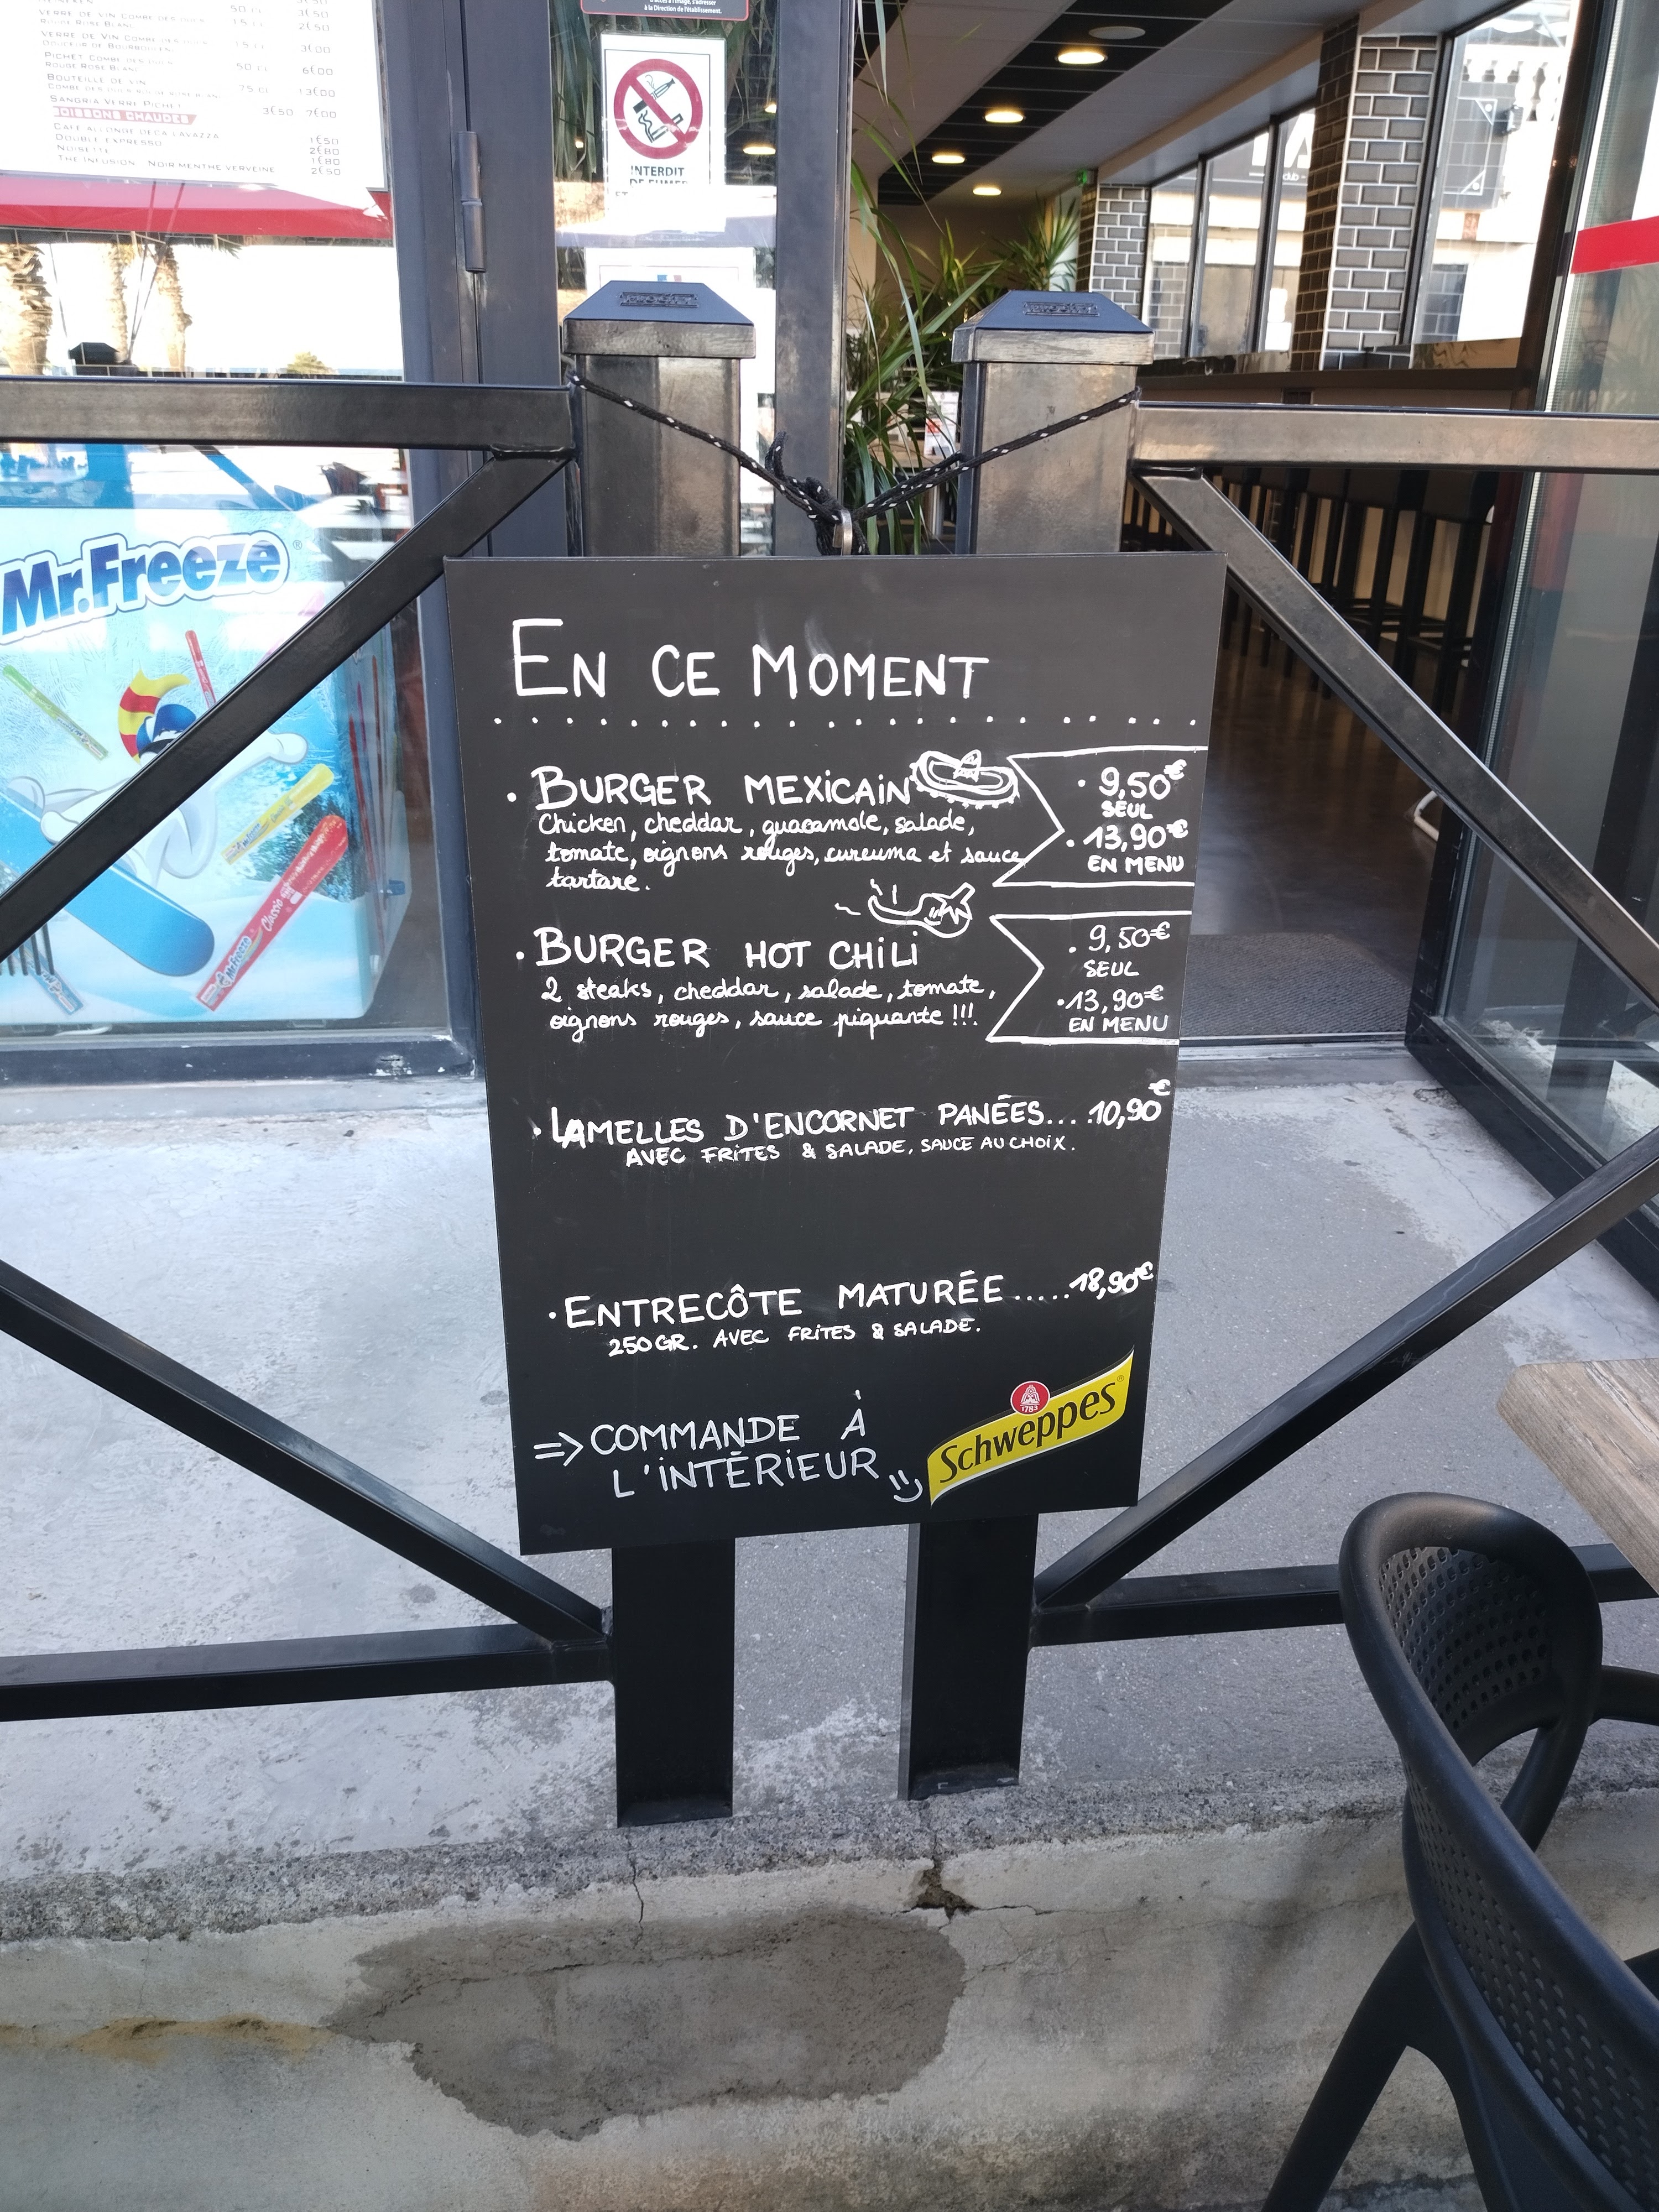 VERRE DE VIN COMBE DES DUCS 15 CL 2€50
ROUGE ROSE BLANC
VERRE DE VIN COMBE DES DUCS 15 CL 3€00
PICHET COMBE DES DUCS 50 CL 6€00
ROUGE ROSE BLANC
BOUTEILLE DE VIN 75 CL 13€00
SANGRIA VERRE PICHET 3€50 7€00
BOISSONS CHAUDES
CAFE ALLONGE DECA LAVAZZA 1€50
DOUBLE EXPRESSO 2€80
NOISETTE 1€80
THE INFUSION NOIR MENTHE VERVEINE 2€50
à la Direction de l'établissement.
INTERDIT
DE FUMER
Mr.Freeze ®
Mr.Freeze Classic
EN CE MOMENT
• BURGER MEXICAIN
Chicken, cheddar, guacamole, salade,
tomate, oignons rouges, curcuma et sauce
tartare.
• 9,50€
SEUL
• 13,90€
EN MENU
• BURGER HOT CHILI
2 steaks, cheddar, salade, tomate,
oignons rouges, sauce piquante !!!
• 9,50€
SEUL
• 13,90€
EN MENU
• LAMELLES D'ENCORNET PANÉES.... 10,90€
AVEC FRITES & SALADE, SAUCE AU CHOIX.
• ENTRECÔTE MATURÉE.....18,90€
250GR. AVEC FRITES & SALADE.
=> COMMANDE À
L'INTÉRIEUR
1783
Schweppes ®